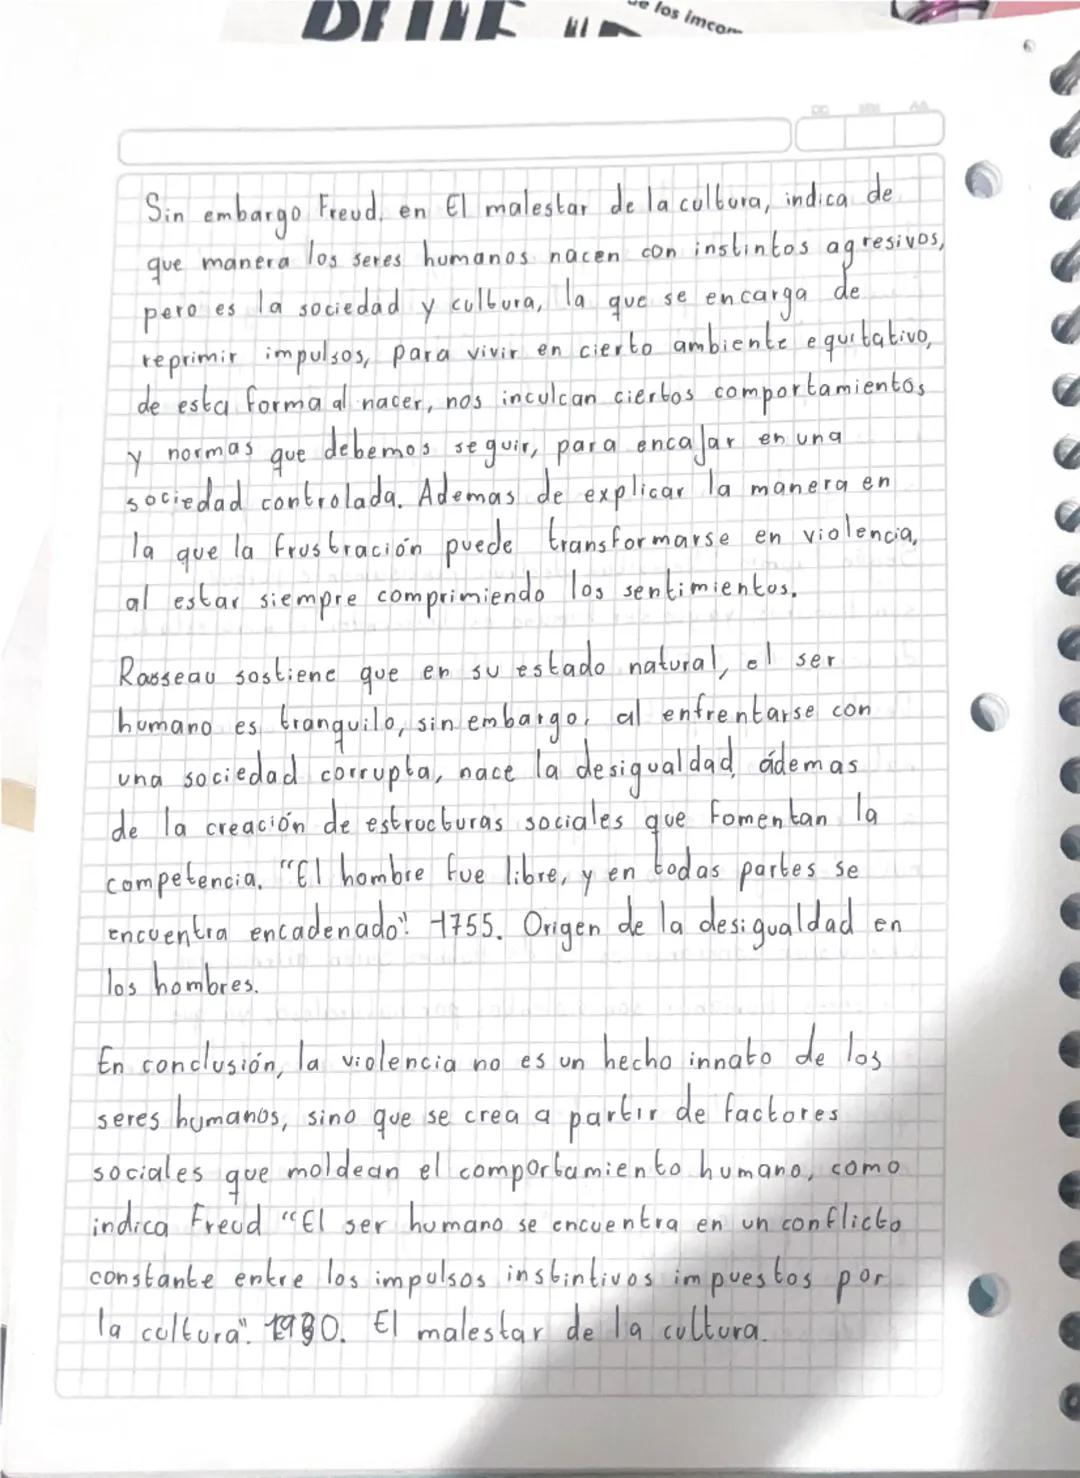 de los incom
DD MM AA
Sin embargo Freud, en El malestar de la cultura, indica de
que manera los seres humanos nacen con instintos agresivos,
pero es la sociedad y cultura, la que se encarga de
reprimir impulsos, para vivir en cierto ambiente equitativo,
de esta forma al nacer, nos inculcan ciertos comportamientos
y normas que debemos seguir, para encajar en una
sociedad controlada. Ademas de explicar la manera en
la que la frustración puede transformarse en violencia,
al estar siempre comprimiendo los sentimientos.
Rousseau sostiene que en su estado natural, el ser
humano es tranquilo, sin embargo, al enfrentarse con
una sociedad corrupta, nace la desigualdad, ádemas
de la creación de estructuras sociales que fomentan la
competencia. "El hombre fue libre, y en todas partes se
encuentra encadenado". 1755. Origen de la desigualdad en
los hombres.
En conclusión, la violencia no es un hecho innato de los
seres humanos, sino que se crea a partir de factores
sociales que moldean el comportamiento humano, como
indica Freud "El ser humano se encuentra en un conflicto
constante entre los impulsos instintivos impuestos por
la cultura". 1930. El malestar de la cultura.